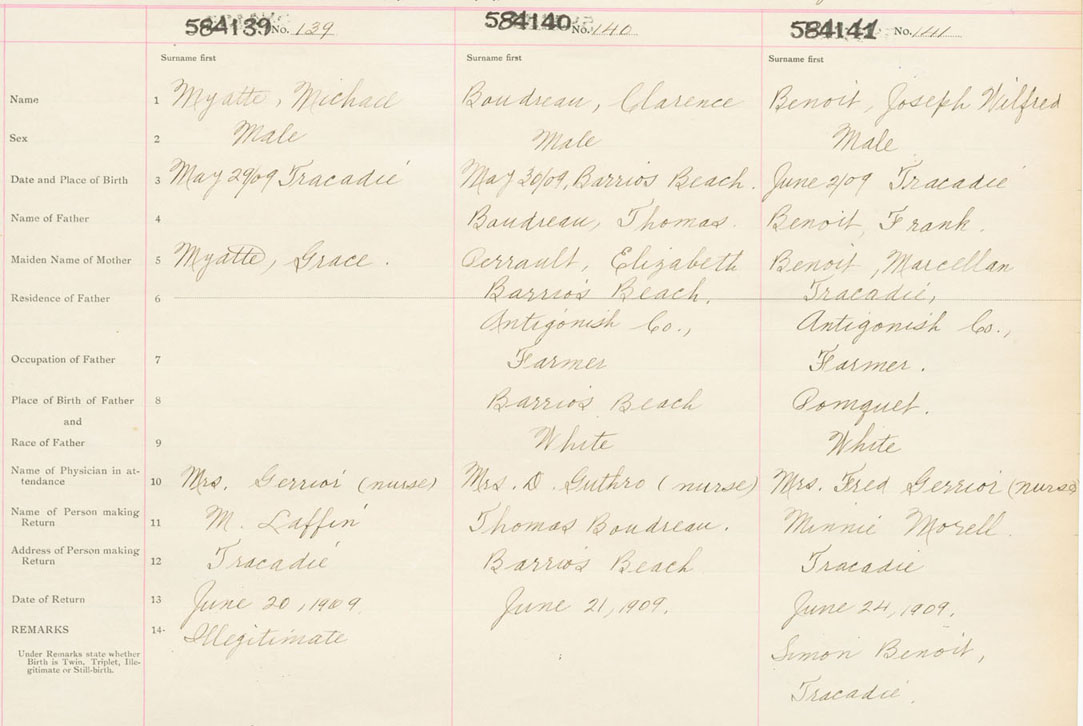 584139 No. 139 584140 No. 140 584141 No. 141
Surname first Surname first Surname first
Name 1 Myatte, Michael Boudreau, Clarence Benoit, Joseph Wilfred
Sex 2 Male Male Male
Date and Place of Birth 3 May 29/09 Tracadie May 30/09, Barrios Beach. June 2/09 Tracadie
Name of Father 4 Boudreau, Thomas. Benoit, Frank.
Maiden Name of Mother 5 Myatte, Grace. Perrault, Elizabeth Benoit, Marcellan
Residence of Father 6 Barrios Beach, Tracadie,
Antigonish Co., Antigonish Co.,
Occupation of Father 7 Farmer Farmer.
Place of Birth of Father 8 Barrios Beach Pomquet.
and
Race of Father 9 White White
Name of Physician in at-
tendance 10 Mrs. Gerrior (nurse) Mrs. D. Guthro (nurse) Mrs. Fred Gerrior (nurse)
Name of Person making
Return 11 M. Laffin Thomas Boudreau. Minnie Morell.
Address of Person making
Return 12 Tracadie Barrios Beach Tracadie
Date of Return 13 June 20, 1909 June 21, 1909. June 24, 1909.
REMARKS 14 Illegitimate
Under Remarks state whether
Birth is Twin, Triplet, Ille-
gitimate or Still-birth.
Simon Benoit,
Tracadie.